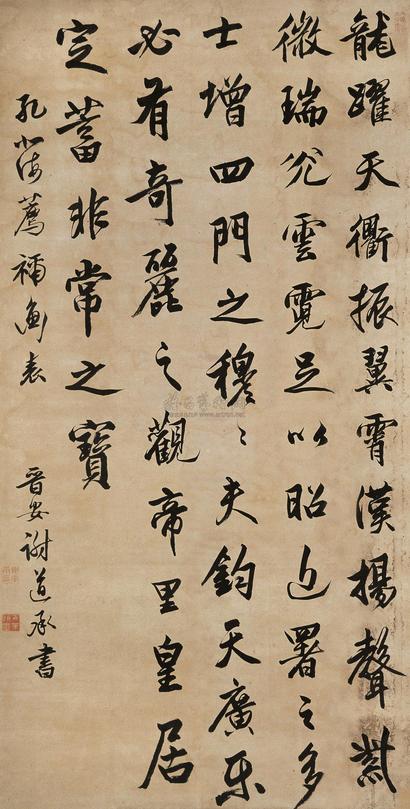 龍躍天衢振翼霄漢揚聲紫
微瑞光雲霓足以昭近署之多
士增四門之穆〻夫鈞天廣乐
必有奇麗之觀帝里皇居
定蓄非常之寶
孔北海薦禰衡表
晋安谢道承書